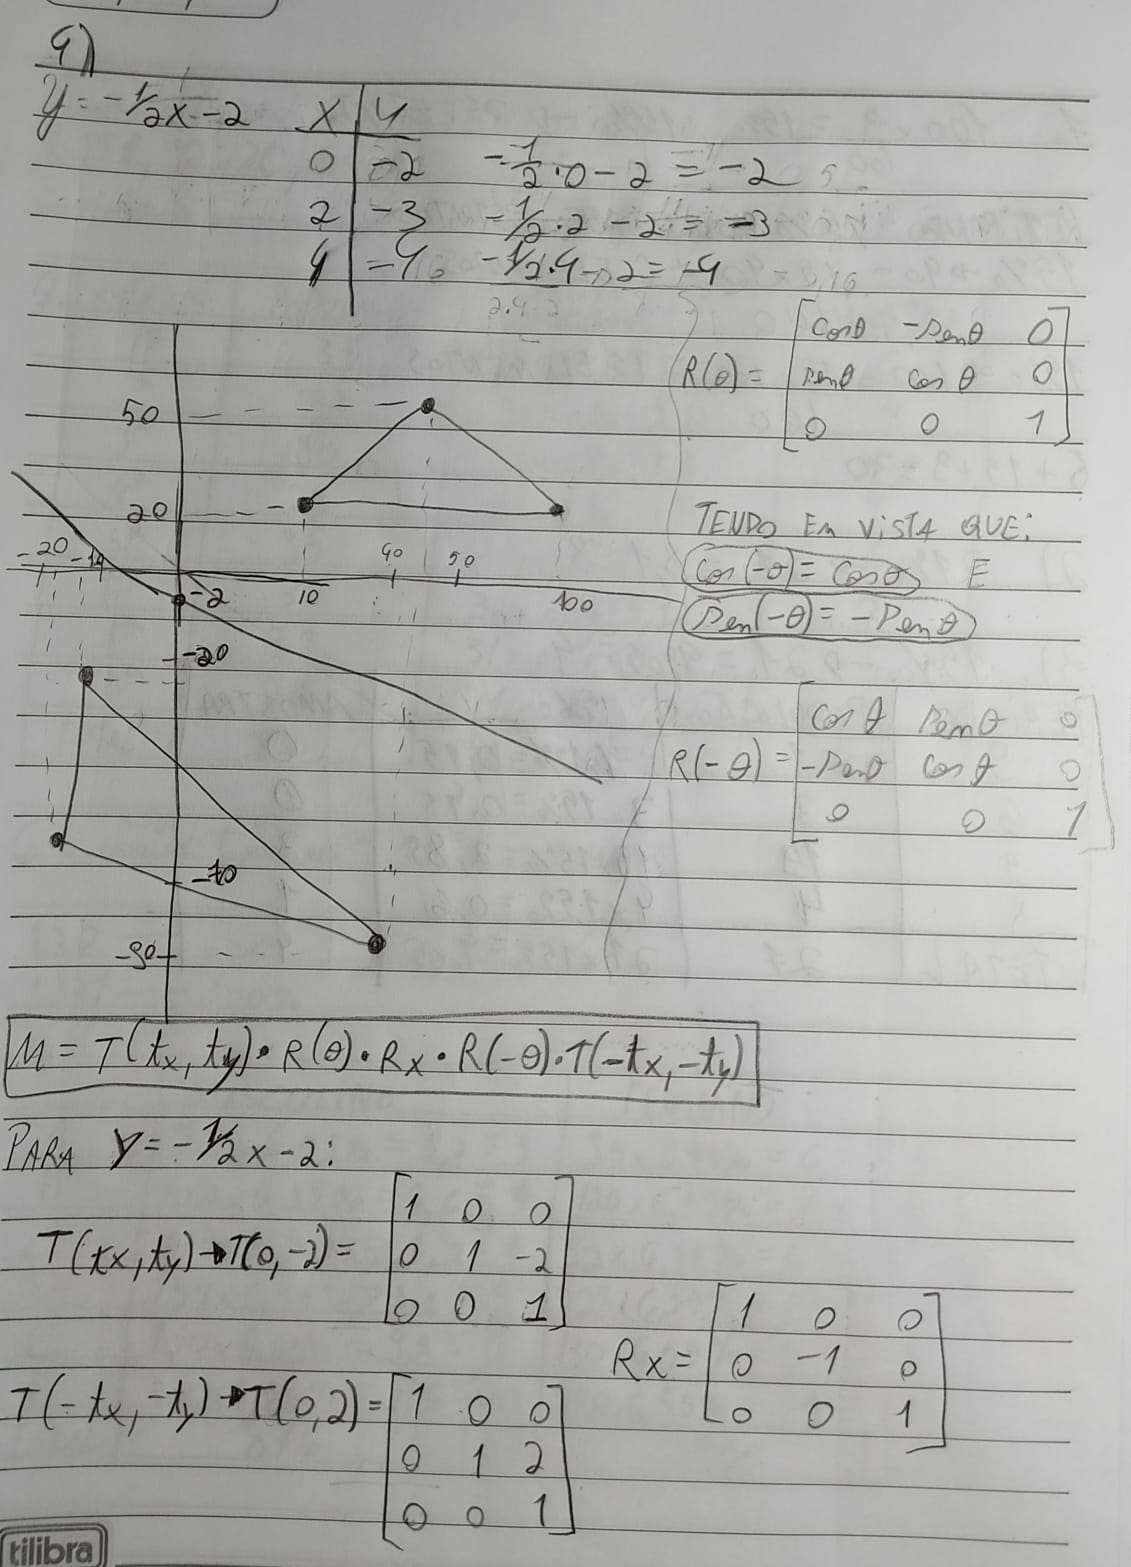 9)
y = -1/2x - 2   x | y
0 | -2   -1/2·0 - 2 = -2
2 | -3   -1/2·2 - 2 = -3
4 | -4   -1/2·4 - 2 = -4
R(θ) = [cosθ -senθ 0
senθ cosθ 0
0 0 1]
50
20
-20 -14 40 50
-2 10 100
-20
-70
-90
TENDO EM VISTA QUE:
cos(-θ) = cosθ E
sen(-θ) = -senθ
R(-θ) = [cosθ senθ 0
-senθ cosθ 0
0 0 1]
M = T(tx, ty) · R(θ) · Rx · R(-θ) · T(-tx, -ty)
PARA y = -1/2x - 2:
T(tx, ty) → T(0, -2) = [1 0 0
0 1 -2
0 0 1]
Rx = [1 0 0
0 -1 0
0 0 1]
T(-tx, -ty) → T(0, 2) = [1 0 0
0 1 2
0 0 1]
tilibra